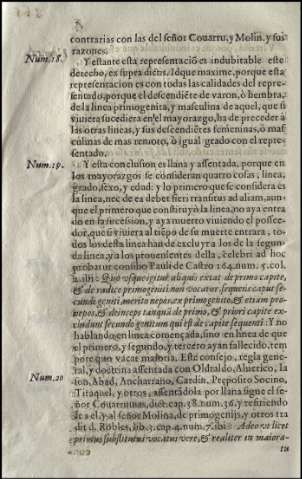 contrarias con las del señor Couarru, y Molin. y sus
razones.
Num. 18. Y estante esta representació es indubitable este
derecho, ex supra dictis. Idque maxime, porque esta
representacion es con todas las calidades del repre-
sentado, porque el descendiéte de varon, ò hembra,
de la linea primogenita, y masculina de aquel, que si
viuiera sucediera en el mayorazgo, ha de preceder à
las otras lineas, y sus descendiétes femeninos, ò mas-
culinos de mas remoto, ò igual grado con el repre-
sentado.
Num. 19. Y esta conclusion es llana y assentada, porque en
los mayorazgos se consideran quatro cosas, linea,
grado, sexo, y edad: y lo primero que se considera es
la linea, nec de ea debet fieri transitus ad aliam, aun-
que el primero que constituyò la linea, no aya entra
do en la sucession, y aya muerto viuiendo el posse-
dor, que si viuiera al tiépo de su muerte entrara, to-
dos los desta linea han de excluyr a los de la segun-
da linea, y a los prouenientes della, celebri ad hoc
probatur consilio Paulo de Castro 164. num. 5. col.
2. ibi: Quo usque igitur aliquis extat de primo capite,
& de radice primogeniti non vocatur sequens caput se-
cundi geniti, merito nepos ex primogenito, & etiam pro-
nepos, & deinceps tanquã de primo, & priori capite ex-
cludunt secundo genitum qui est de capite sequenti: Y no
hablando en linea començada, sino en linea de que
el primero, y segundo, y tercero ayan fallecido, tem
pore quo vacat maioria. Este consejo, regla gene-
ral, y doctrina assentada con Oldraldo, Alverico, Ia
son, Abad, Ancharrano, Cardin. Preposito Socino,
Num. 20 Tiraquel, y otros, assentãdola por llana sigue el se-
ñor Couarruuias, dict. cap. 38. num. 36. y refiriendo
le a el, y al señor Molina, de primogenijs, y otros tra
dit d. Robles, lib. 3. cap. 4. num. 7. ibi: Adeo ut licet
primus substitutus vocatus vere, & realiter in maiora-
tu